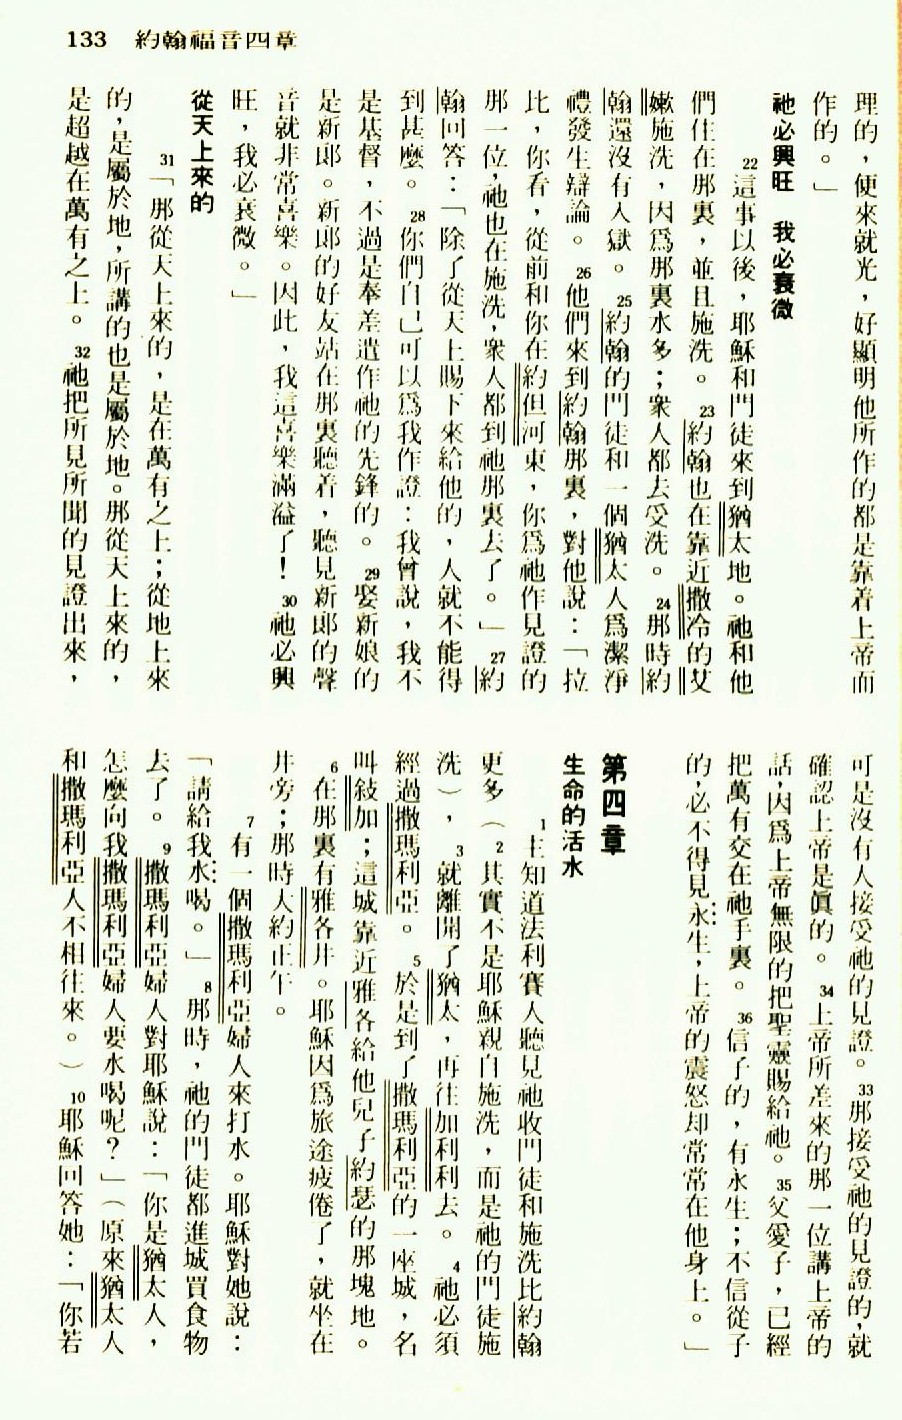 133　約翰福音四章
理的，便來就光，好顯明他所作的都是靠着上帝而
作的。」
祂必興旺　我必衰微
22這事以後，耶穌和門徒來到猶太地。祂和他
們住在那裏，並且施洗。23約翰也在靠近撒冷的艾
嫩施洗，因爲那裏水多；衆人都去受洗。24那時約
翰還沒有入獄。25約翰的門徒和一個猶太人爲潔淨
禮發生辯論。26他們來到約翰那裏，對他說：「拉
比，你看，從前和你在約但河東，你爲祂作見證的
那一位，祂也在施洗，衆人都到祂那裏去了。」27約
翰回答：「除了從天上賜下來給他的，人就不能得
到甚麼。28你們自己可以爲我作證：我曾說，我不
是基督，不過是奉差遣作祂的先鋒的。29娶新娘的
是新郎。新郎的好友站在那裏聽着，聽見新郎的聲
音就非常喜樂。因此，我這喜樂滿溢了！30祂必興
旺，我必衰微。」
從天上來的
31「那從天上來的，是在萬有之上；從地上來
的，是屬於地，所講的也是屬於地。那從天上來的，
是超越在萬有之上。32祂把所見所聞的見證出來，
可是沒有人接受祂的見證。33那接受祂的見證的，就
確認上帝是眞的。34上帝所差來的那一位講上帝的
話，因爲上帝無限的把聖靈賜給祂。35父愛子，已經
把萬有交在祂手裏。36信子的，有永生；不信從子
的，必不得見永生，上帝的震怒却常常在他身上。」
第四章
生命的活水
1主知道法利賽人聽見祂收門徒和施洗比約翰
更多（2其實不是耶穌親自施洗，而是祂的門徒施
洗），3就離開了猶太，再往加利利去。4祂必須
經過撒瑪利亞。5於是到了撒瑪利亞的一座城，名
叫敍加；這城靠近雅各給他兒子約瑟的那塊地。
6在那裏有雅各井。耶穌因爲旅途疲倦了，就坐在
井旁；那時大約正午。
7有一個撒瑪利亞婦人來打水。耶穌對她說：
「請給我水喝。」8那時，祂的門徒都進城買食物
去了。9撒瑪利亞婦人對耶穌說：「你是猶太人，
怎麼向我撒瑪利亞婦人要水喝呢？」（原來猶太人
和撒瑪利亞人不相往來。）10耶穌回答她：「你若